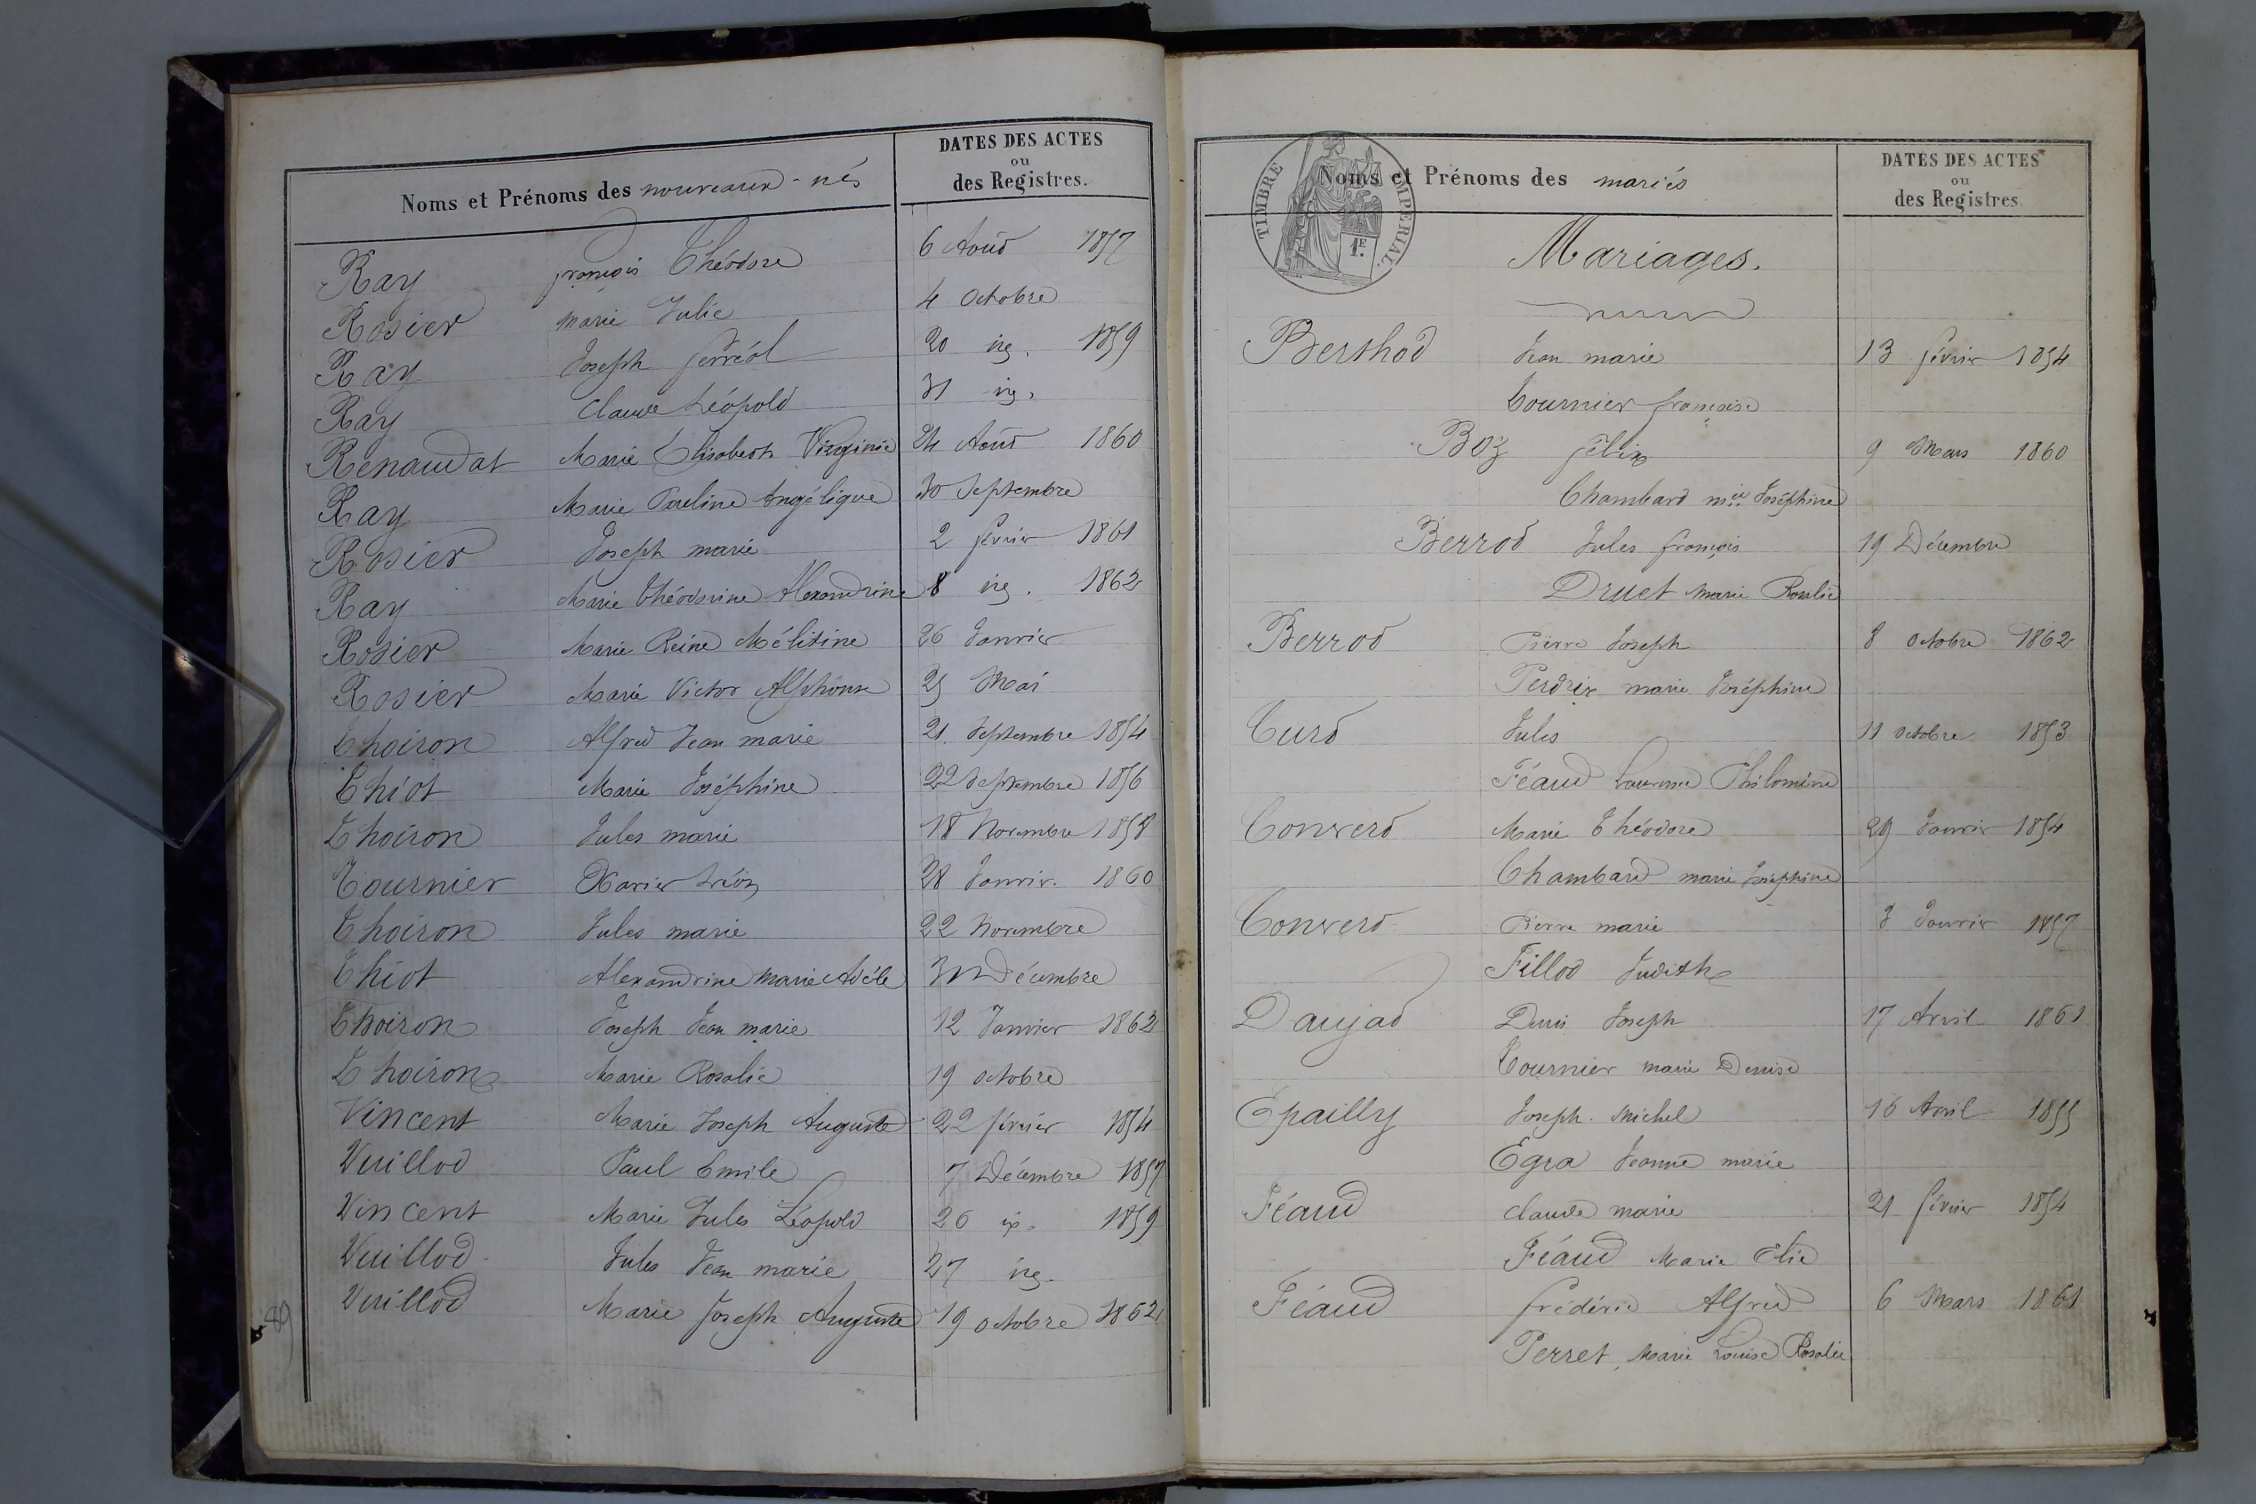 Noms et Prénoms des nouveaux-nés
DATES DES ACTES
ou
des Registres.
Ray françois Théodore 6 Août 1857
Rosier Marie Julie 4 Octobre
Ray Joseph ferréol 20 1859
Ray Claude Léopold 31
Renaudat Marie Elisabeth Virginie 24 Août 1860
Ray Marie Pauline Angélique 30 Septembre
Rosier Joseph marie 2 février 1861
Ray Marie Théodorine Alexandrine 8 1862
Rosier Marie Reine Mélitine 26 Janvier
Rosier Marie Victor Alphonse 25 Mai
Thoiron Alfred Jean marie 21 Septembre 1854
Thiot Marie Joséphine 22 Septembre 1856
Thoiron Jules marie 18 Novembre 1858
Tournier Xavier Léon 28 Janvir. 1860
Thoiron Jules marie 22 Novembre
Thiot Alexandrine marie Adèle 31 Décembre
Thoiron Joseph Jean marie 12 Janvier 1862
Thoiron Marie Rosalie 19 octobre
Vincent Marie Joseph Auguste 22 février 1854
Vuillod Paul Emile 7 Décembre 1857
Vincent Marie Jules Léopold 26 1859
Vuillod Jules Jean marie 27
Vuillod Marie Joseph Auguste 19 octobre 1862
TIMBRE IMPERIAL.
1E.
Noms et Prénoms des mariés
DATES DES ACTES
ou
des Registres
Mariages.
Berthod Jean marie 13 février 1854
Tournier françoise
Boz félix 9 Mars 1860
Chambard mie Joséphine
Berrod Jules françois 19 Décembre
Druet Marie Rosalie
Berrod Pierre Joseph 8 octobre 1862
Perdrix marie Joséphine
Curd Jules 11 octobre 1853
Féaud Laurence Philomène
Converd Marie Théodore 29 Janvir 1854
Chambard marie Joséphine
Converd Pierre marie 3 Janvir 1857
Fillod Judith
Daujad Denis Joseph 17 Avril 1861
Tournier marie Denise
Epailly Joseph Michel 16 Avril 1855
Egra Jeanne marie
Féaud Claude marie 21 février 1854
Féaud Marie Elie
Féaud frédéric Alfred 6 Mars 1861
Perret, Marie Louise Rosalie